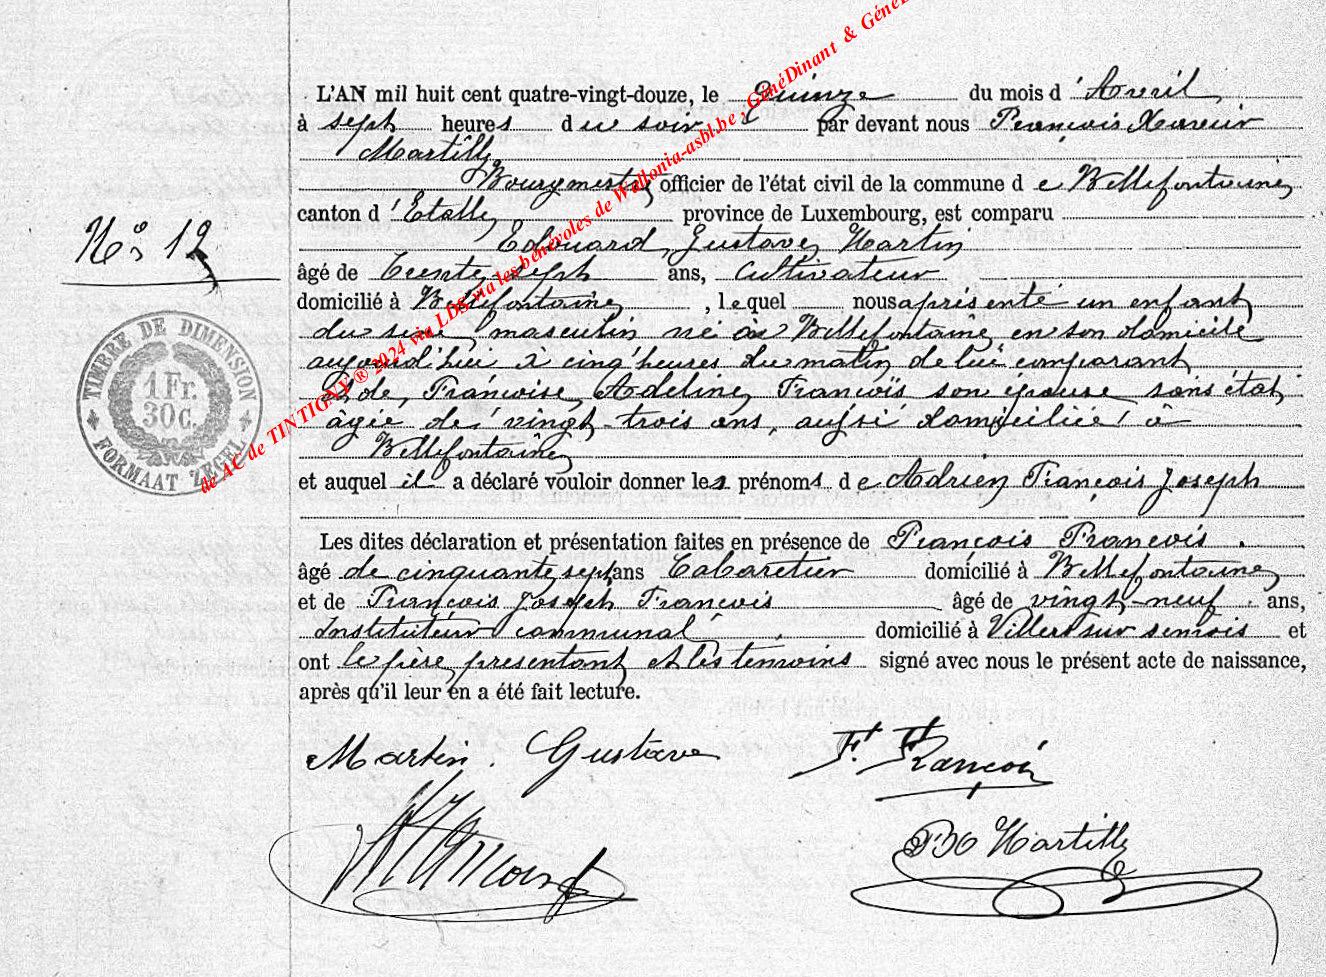 L'AN mil huit cent quatre-vingt-douze, le Quinze du mois d'Avril
à sept heures du soir par devant nous François Xavier
Martilly
Bourgmestre officier de l'état civil de la commune de Bellefontaine
canton d'Etalle province de Luxembourg, est comparu
Edouard Gustave Martin
N° 12
âgé de trente sept ans, cultivateur
domicilié à Bellefontaine, lequel nous a présenté un enfant
du sexe masculin né à Bellefontaine en son domicile
aujourd'hui à cinq heures du matin de lui comparant
et de Françoise Adeline François son épouse sans état
âgée de vingt-trois ans, aussi domiciliée à
Bellefontaine
et auquel il a déclaré vouloir donner les prénoms de Adrien François Joseph
Les dites déclaration et présentation faites en présence de François François
âgé de cinquante sept ans Cabaretier domicilié à Bellefontaine
et de François Joseph François âgé de vingt-neuf ans,
Instituteur communal domicilié à Villers sur semois et
ont le père présentant et les témoins signé avec nous le présent acte de naissance,
après qu'il leur en a été fait lecture.
Martin Gustave Ft. François
FX Martilly
TIMBRE DE DIMENSION
1 Fr.
30 C.
FORMAAT ZEGEL
de AC de TINTIGNY ® 2024 via LDS via les bénévoles de Wallonia-asbl.be, GénéDinant & Géné